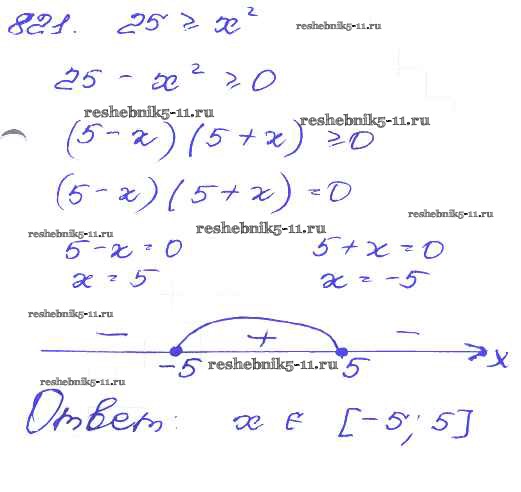 821. 25 ≥ x² reshebnik5-11.ru
25 - x² ≥ 0
reshebnik5-11.ru reshebnik5-11.ru
(5 - x) (5 + x) ≥ 0
(5 - x) (5 + x) = 0
reshebnik5-11.ru
reshebnik5-11.ru reshebnik5-11.ru
5 - x = 0 5 + x = 0
x = 5 x = -5
reshebnik5-11.ru
— + —
-5 reshebnik5-11.ru 5 x
reshebnik5-11.ru
Ответ: x ∈ [-5; 5]